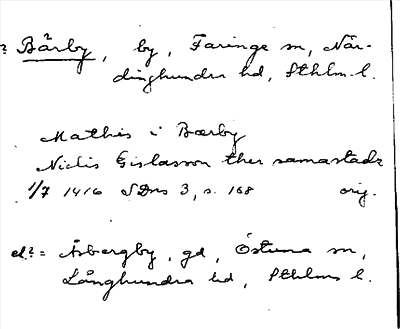 ? Bärby, by, Faringe sn, När-
dinghundra hd, Sthlm.l.
Mathis i Bærby
Niclis Gislasson ther samastadz
1/7 1416 SDns 3, s. 168 orig.
el? = Åsbergby, gd, Östuna sn,
Långhundra hd, Sthlms l.